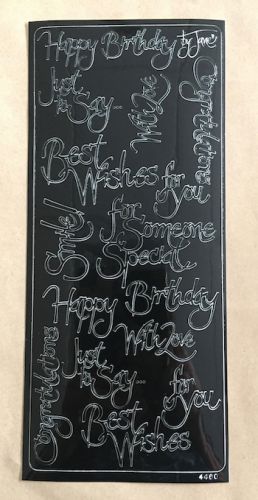 Happy Birthday by Jane's
Just
to
Say...
With Love
Congratulations
Best
Wishes
for
you
Smile!
for
Someone
Special
Happy Birthday
With Love
Congratulations
Just
to
Say...
for
you
Best
Wishes
4460